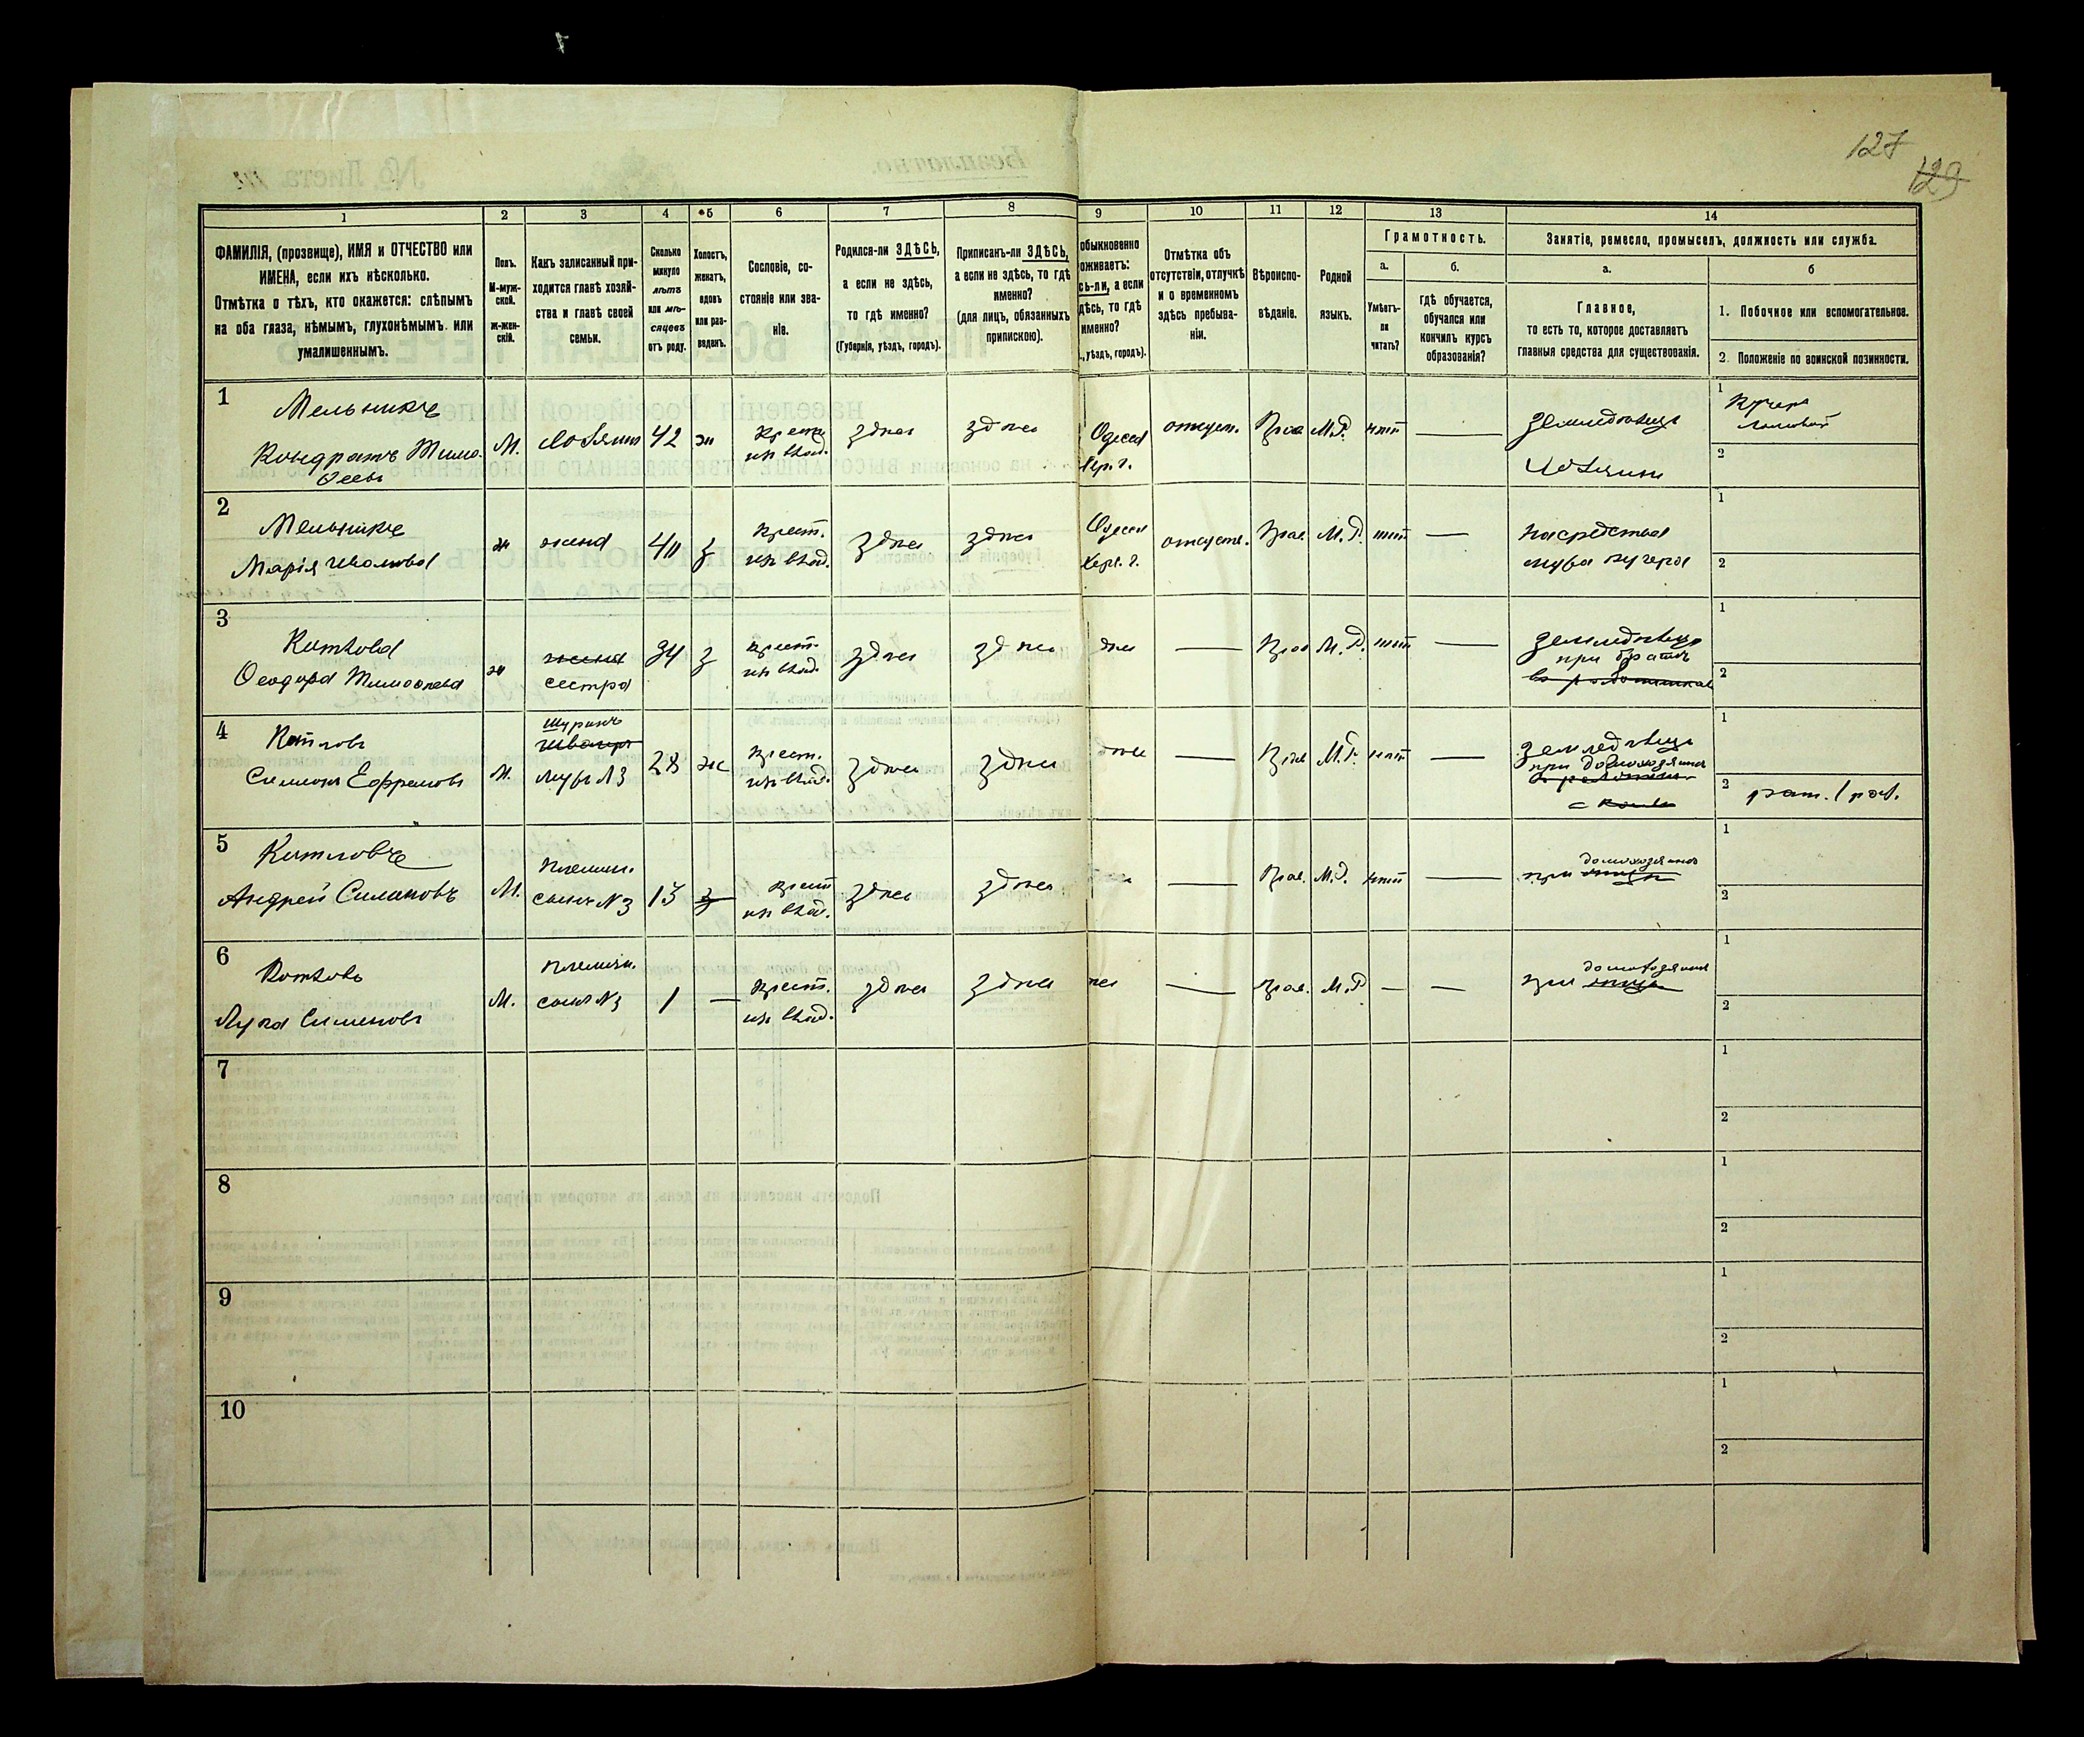 127
129
1
2
3
4
5
6
7
8
9
10
11
12
13
14
ФАМИЛІЯ, (прозвище), ИМЯ и ОТЧЕСТВО или
ИМЕНА, если ихъ нѣсколько.
Отмѣтка о тѣхъ, кто окажется: слѣпымъ
на оба глаза, нѣмымъ, глухонѣмымъ или
умалишеннымъ.
Полъ.
М-муж-
ской.
ж-жен-
скій.
Какъ записанный при-
ходится главѣ хозяй-
ства и главѣ своей
семьи.
Сколько
минуло
лѣтъ
или мѣ-
сяцевъ
отъ роду.
Холостъ,
женатъ,
вдовъ
или раз-
веденъ.
Сословіе, со-
стояніе или зва-
ніе.
Родился-ли ЗДѢСЬ,
а если не здѣсь,
то гдѣ именно?
(Губернія, уѣздъ, городъ).
Приписанъ-ли ЗДѢСЬ,
а если не здѣсь, то гдѣ
именно?
(для лицъ, обязанныхъ
припискою).
обыкновенно
оживаетъ:
сь-ли, а если
дѣсь, то гдѣ
именно?
., уѣздъ, городъ).
Отмѣтка объ
отсутствіи, отлучкѣ
и о временномъ
здѣсь пребыва-
ніи.
Вѣроиспо-
вѣданіе.
Родной
языкъ.
Грамотность.
а.
Умѣетъ-
ли
читать?
б.
гдѣ обучается,
обучался или
кончилъ курсъ
образованія?
Занятіе, ремесло, промыселъ, должность или служба.
а.
Главное,
то есть то, которое доставляетъ
главныя средства для существованія.
б
1. Побочное или вспомогательное.
2. Положеніе по воинской повинности.
1
Мельникъ
Кондратъ Тимо-
ѳеевъ
М.
хозяинъ
42
ж
Крест.
изъ влад.
здѣсь
здѣсь
Одесса
Хер. г.
отсут.
Прав.
М.Р.
нѣтъ
земледѣлецъ
хозяинъ
1
Кучеръ
2
2
Мельникъ
Марія
ж
жена
40
з
Крест.
изъ влад.
здѣсь
здѣсь
Одесса
Херс. г.
отсутст.
Прав.
М.Р.
нѣтъ
на средства
мужа кучера
1
2
3
Китлова
Ѳеодора Тимоѳеева
ж
жена
сестра
34
з
Крест.
изъ влад.
здѣсь
здѣсь
Прав.
М.Р.
нѣтъ
земледѣлецъ
при братѣ
въ работникахъ
1
2
4
Китловъ
Симеонъ Ефремовъ
М.
шуринъ
мужъ №3
28
ж
Крест.
изъ влад.
здѣсь
здѣсь
Прав.
М.Р.
нѣтъ
земледѣлецъ
при домохозяинѣ
1
2
рат. 1 раз.
5
Китловъ
Андрей Симоновъ
М.
племян.
сынъ №3
13
з
Крест.
изъ влад.
здѣсь
здѣсь
Прав.
М.Р.
нѣтъ
домохозяинѣ
при отцѣ
1
2
6
Котловъ
Лука Симеоновъ
М.
племян.
сынъ №3
1
Крест.
изъ влад.
здѣсь
здѣсь
Прав.
М.Р.
домохозяинѣ
при отцѣ
1
2
7
1
2
8
1
2
9
1
2
10
1
2